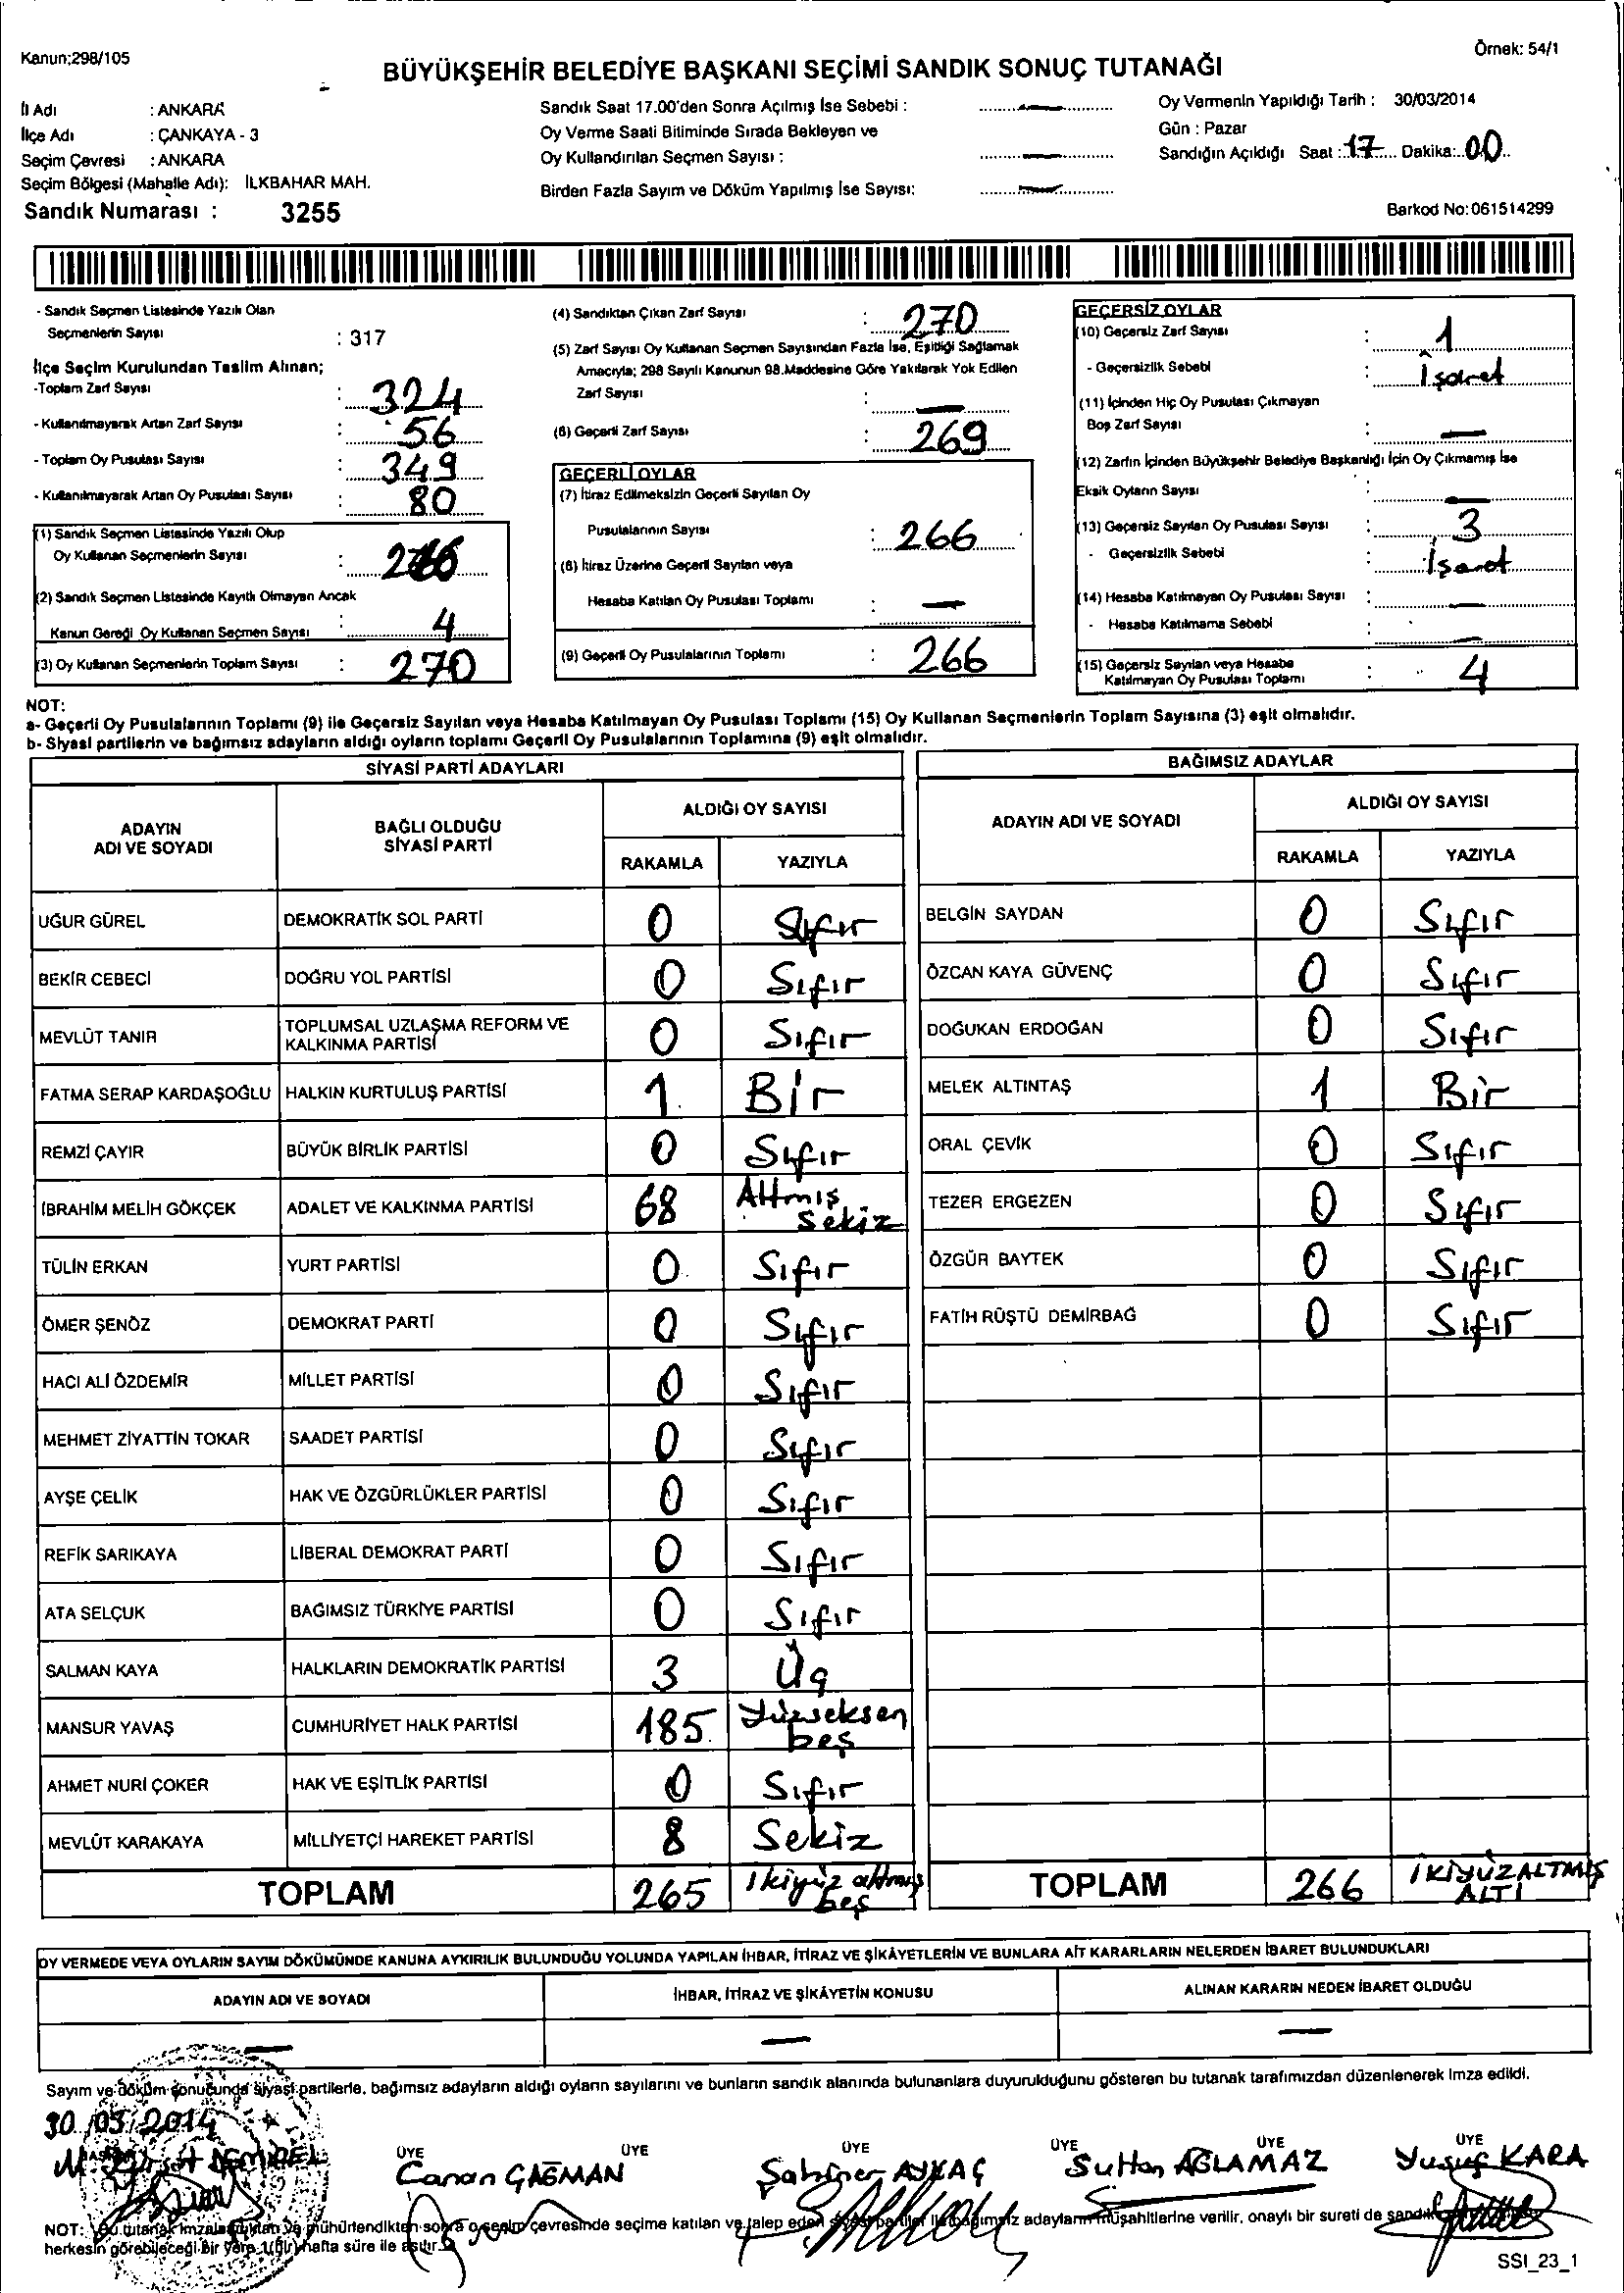 Kanun:298/105
Örnek: 54/1
BÜYÜKŞEHİR BELEDİYE BAŞKANI SEÇİMİ SANDIK SONUÇ TUTANAĞI
İl Adı : ANKARA
İlçe Adı : ÇANKAYA - 3
Seçim Çevresi : ANKARA
Seçim Bölgesi (Mahalle Adı): İLKBAHAR MAH.
Sandık Numarası : 3255
Sandık Saat 17.00'den Sonra Açılmış İse Sebebi : —
Oy Verme Saati Bitiminde Sırada Bekleyen ve
Oy Kullandırılan Seçmen Sayısı : —
Birden Fazla Sayım ve Döküm Yapılmış İse Sayısı: —
Oy Vermenin Yapıldığı Tarih : 30/03/2014
Gün : Pazar
Sandığın Açıldığı Saat : 17 Dakika: 00
Barkod No: 061514299
- Sandık Seçmen Listesinde Yazılı Olan
Seçmenlerin Sayısı : 317
İlçe Seçim Kurulundan Teslim Alınan;
-Toplam Zarf Sayısı : 324
- Kullanılmayarak Artan Zarf Sayısı : 56
- Toplam Oy Pusulası Sayısı : 349
- Kullanılmayarak Artan Oy Pusulası Sayısı : 80
(1) Sandık Seçmen Listesinde Yazılı Olup
Oy Kullanan Seçmenlerin Sayısı : 266
(2) Sandık Seçmen Listesinde Kayıtlı Olmayan Ancak
Kanun Gereği Oy Kullanan Seçmen Sayısı : 4
(3) Oy Kullanan Seçmenlerin Toplam Sayısı : 270
(4) Sandıktan Çıkan Zarf Sayısı : 270
(5) Zarf Sayısı Oy Kullanan Seçmen Sayısından Fazla İse, Eşitliği Sağlamak
Amacıyla; 298 Sayılı Kanunun 98.Maddesine Göre Yakılarak Yok Edilen
Zarf Sayısı : —
(6) Geçerli Zarf Sayısı : 269
GEÇERLİ OYLAR
(7) İtiraz Edilmeksizin Geçerli Sayılan Oy
Pusulalarının Sayısı : 266
(8) İtiraz Üzerine Geçerli Sayılan veya
Hesaba Katılan Oy Pusulası Toplamı : —
(9) Geçerli Oy Pusulalarının Toplamı : 266
GEÇERSİZ OYLAR
(10) Geçersiz Zarf Sayısı : 1
- Geçersizlik Sebebi : İşaret
(11) İçinden Hiç Oy Pusulası Çıkmayan
Boş Zarf Sayısı : —
(12) Zarfın İçinden Büyükşehir Belediye Başkanlığı İçin Oy Çıkmamış İse
Eksik Oyların Sayısı : —
(13) Geçersiz Sayılan Oy Pusulası Sayısı : 3
- Geçersizlik Sebebi : İşaret
(14) Hesaba Katılmayan Oy Pusulası Sayısı : —
- Hesaba Katılmama Sebebi : —
(15) Geçersiz Sayılan veya Hesaba
Katılmayan Oy Pusulası Toplamı : 4
NOT:
a- Geçerli Oy Pusulalarının Toplamı (9) ile Geçersiz Sayılan veya Hesaba Katılmayan Oy Pusulası Toplamı (15) Oy Kullanan Seçmenlerin Toplam Sayısına (3) eşit olmalıdır.
b- Siyasi partilerin ve bağımsız adayların aldığı oyların toplamı Geçerli Oy Pusulalarının Toplamına (9) eşit olmalıdır.
SİYASİ PARTİ ADAYLARI
ADAYIN ADI VE SOYADI
BAĞLI OLDUĞU SİYASİ PARTİ
ALDIĞI OY SAYISI
RAKAMLA YAZIYLA
UĞUR GÜREL DEMOKRATİK SOL PARTİ 0 Sıfır
BEKİR CEBECİ DOĞRU YOL PARTİSİ 0 Sıfır
MEVLÜT TANIR TOPLUMSAL UZLAŞMA REFORM VE KALKINMA PARTİSİ 0 Sıfır
FATMA SERAP KARDAŞOĞLU HALKIN KURTULUŞ PARTİSİ 1 Bir
REMZİ ÇAYIR BÜYÜK BİRLİK PARTİSİ 0 Sıfır
İBRAHİM MELİH GÖKÇEK ADALET VE KALKINMA PARTİSİ 68 Altmış Sekiz
TÜLİN ERKAN YURT PARTİSİ 0 Sıfır
ÖMER ŞENÖZ DEMOKRAT PARTİ 0 Sıfır
HACI ALİ ÖZDEMİR MİLLET PARTİSİ 0 Sıfır
MEHMET ZİYATTİN TOKAR SAADET PARTİSİ 0 Sıfır
AYŞE ÇELİK HAK VE ÖZGÜRLÜKLER PARTİSİ 0 Sıfır
REFİK SARIKAYA LİBERAL DEMOKRAT PARTİ 0 Sıfır
ATA SELÇUK BAĞIMSIZ TÜRKİYE PARTİSİ 0 Sıfır
SALMAN KAYA HALKLARIN DEMOKRATİK PARTİSİ 3 Üç
MANSUR YAVAŞ CUMHURİYET HALK PARTİSİ 185 Yüzseksen beş
AHMET NURİ ÇOKER HAK VE EŞİTLİK PARTİSİ 0 Sıfır
MEVLÜT KARAKAYA MİLLİYETÇİ HAREKET PARTİSİ 8 Sekiz
TOPLAM 265 İkiyüz altmış beş
BAĞIMSIZ ADAYLAR
ADAYIN ADI VE SOYADI
ALDIĞI OY SAYISI
RAKAMLA YAZIYLA
BELGİN SAYDAN 0 Sıfır
ÖZCAN KAYA GÜVENÇ 0 Sıfır
DOĞUKAN ERDOĞAN 0 Sıfır
MELEK ALTINTAŞ 1 Bir
ORAL ÇEVİK 0 Sıfır
TEZER ERGEZEN 0 Sıfır
ÖZGÜR BAYTEK 0 Sıfır
FATİH RÜŞTÜ DEMİRBAĞ 0 Sıfır
TOPLAM 266 İKİYÜZALTMIŞ ALTI
OY VERMEDE VEYA OYLARIN SAYIM DÖKÜMÜNDE KANUNA AYKIRILIK BULUNDUĞU YOLUNDA YAPILAN İHBAR, İTİRAZ VE ŞİKÂYETLERİN VE BUNLARA AİT KARARLARIN NELERDEN İBARET BULUNDUKLARI
ADAYIN ADI VE SOYADI İHBAR, İTİRAZ VE ŞİKÂYETİN KONUSU ALINAN KARARIN NEDEN İBARET OLDUĞU
— — —
Sayım ve döküm sonucunda siyasi partilerle, bağımsız adayların aldığı oyların sayılarını ve bunların sandık alanında bulunanlara duyurulduğunu gösteren bu tutanak tarafımızdan düzenlenerek imza edildi.
30/03/2014
ÜYE ÜYE ÜYE ÜYE ÜYE ÜYE
DEMİREL Canan ÇAĞMAN AYKAÇ Sultan AĞLAMAZ Yusuf KARA
NOT: Bu tutanak imzalandıktan ve mühürlendikten sonra o seçim çevresinde seçime katılan ve talep eden siyasi partiler ile bağımsız adayların müşahitlerine verilir, onaylı bir sureti de sandık
herkesin görebileceği bir yere 1(Bir) hafta süre ile asılır.
SSI_23_1